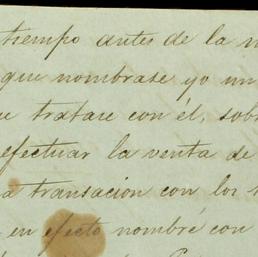 tiempo antes de la
que nombrase yo un
tratase con él, sob
efectuar la venta de
a transacion con los
en efecto nombré con